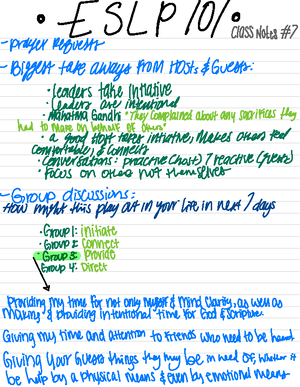 • ESLP 101 •
Class Notes #7
- prayer requests
- Biggest take aways from Hosts & Guests:
• leaders take initiative
• Leaders are intentional
• Mahatma Gandhi "They complained about any sacrifices they
had to make on behalf of others"
• a good Host takes initiative, makes others feel
comfortable, & connects
• Conversations: proactive (host) / reactive (guests)
• Focus on others not themselves
- Group discussions:
How might this play out in your life in next 7 days
• Group 1: initiate
• Group 2: Connect
• Group 3: Provide
Group 4: Direct
Providing my time for not only myself & mind clarity, as well as
making & providing intentional time for God & scripture.
Giving my time and attention to Friends who need to be heard
Giving your Guests things they may be in need of, whether it
be help by a physical means & even by emotional means